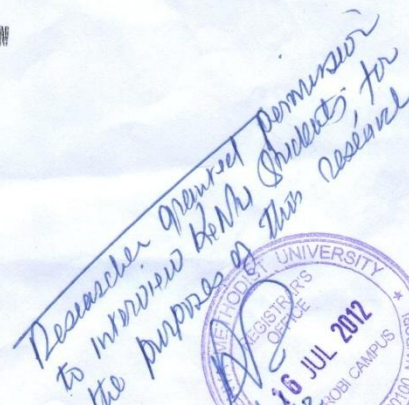 Researcher granted permission
to interview KeMU Students for
the purposes of this research
METHODIST UNIVERSITY
REGISTRAR'S
OFFICE
16 JUL 2012
ROBI CAMPUS